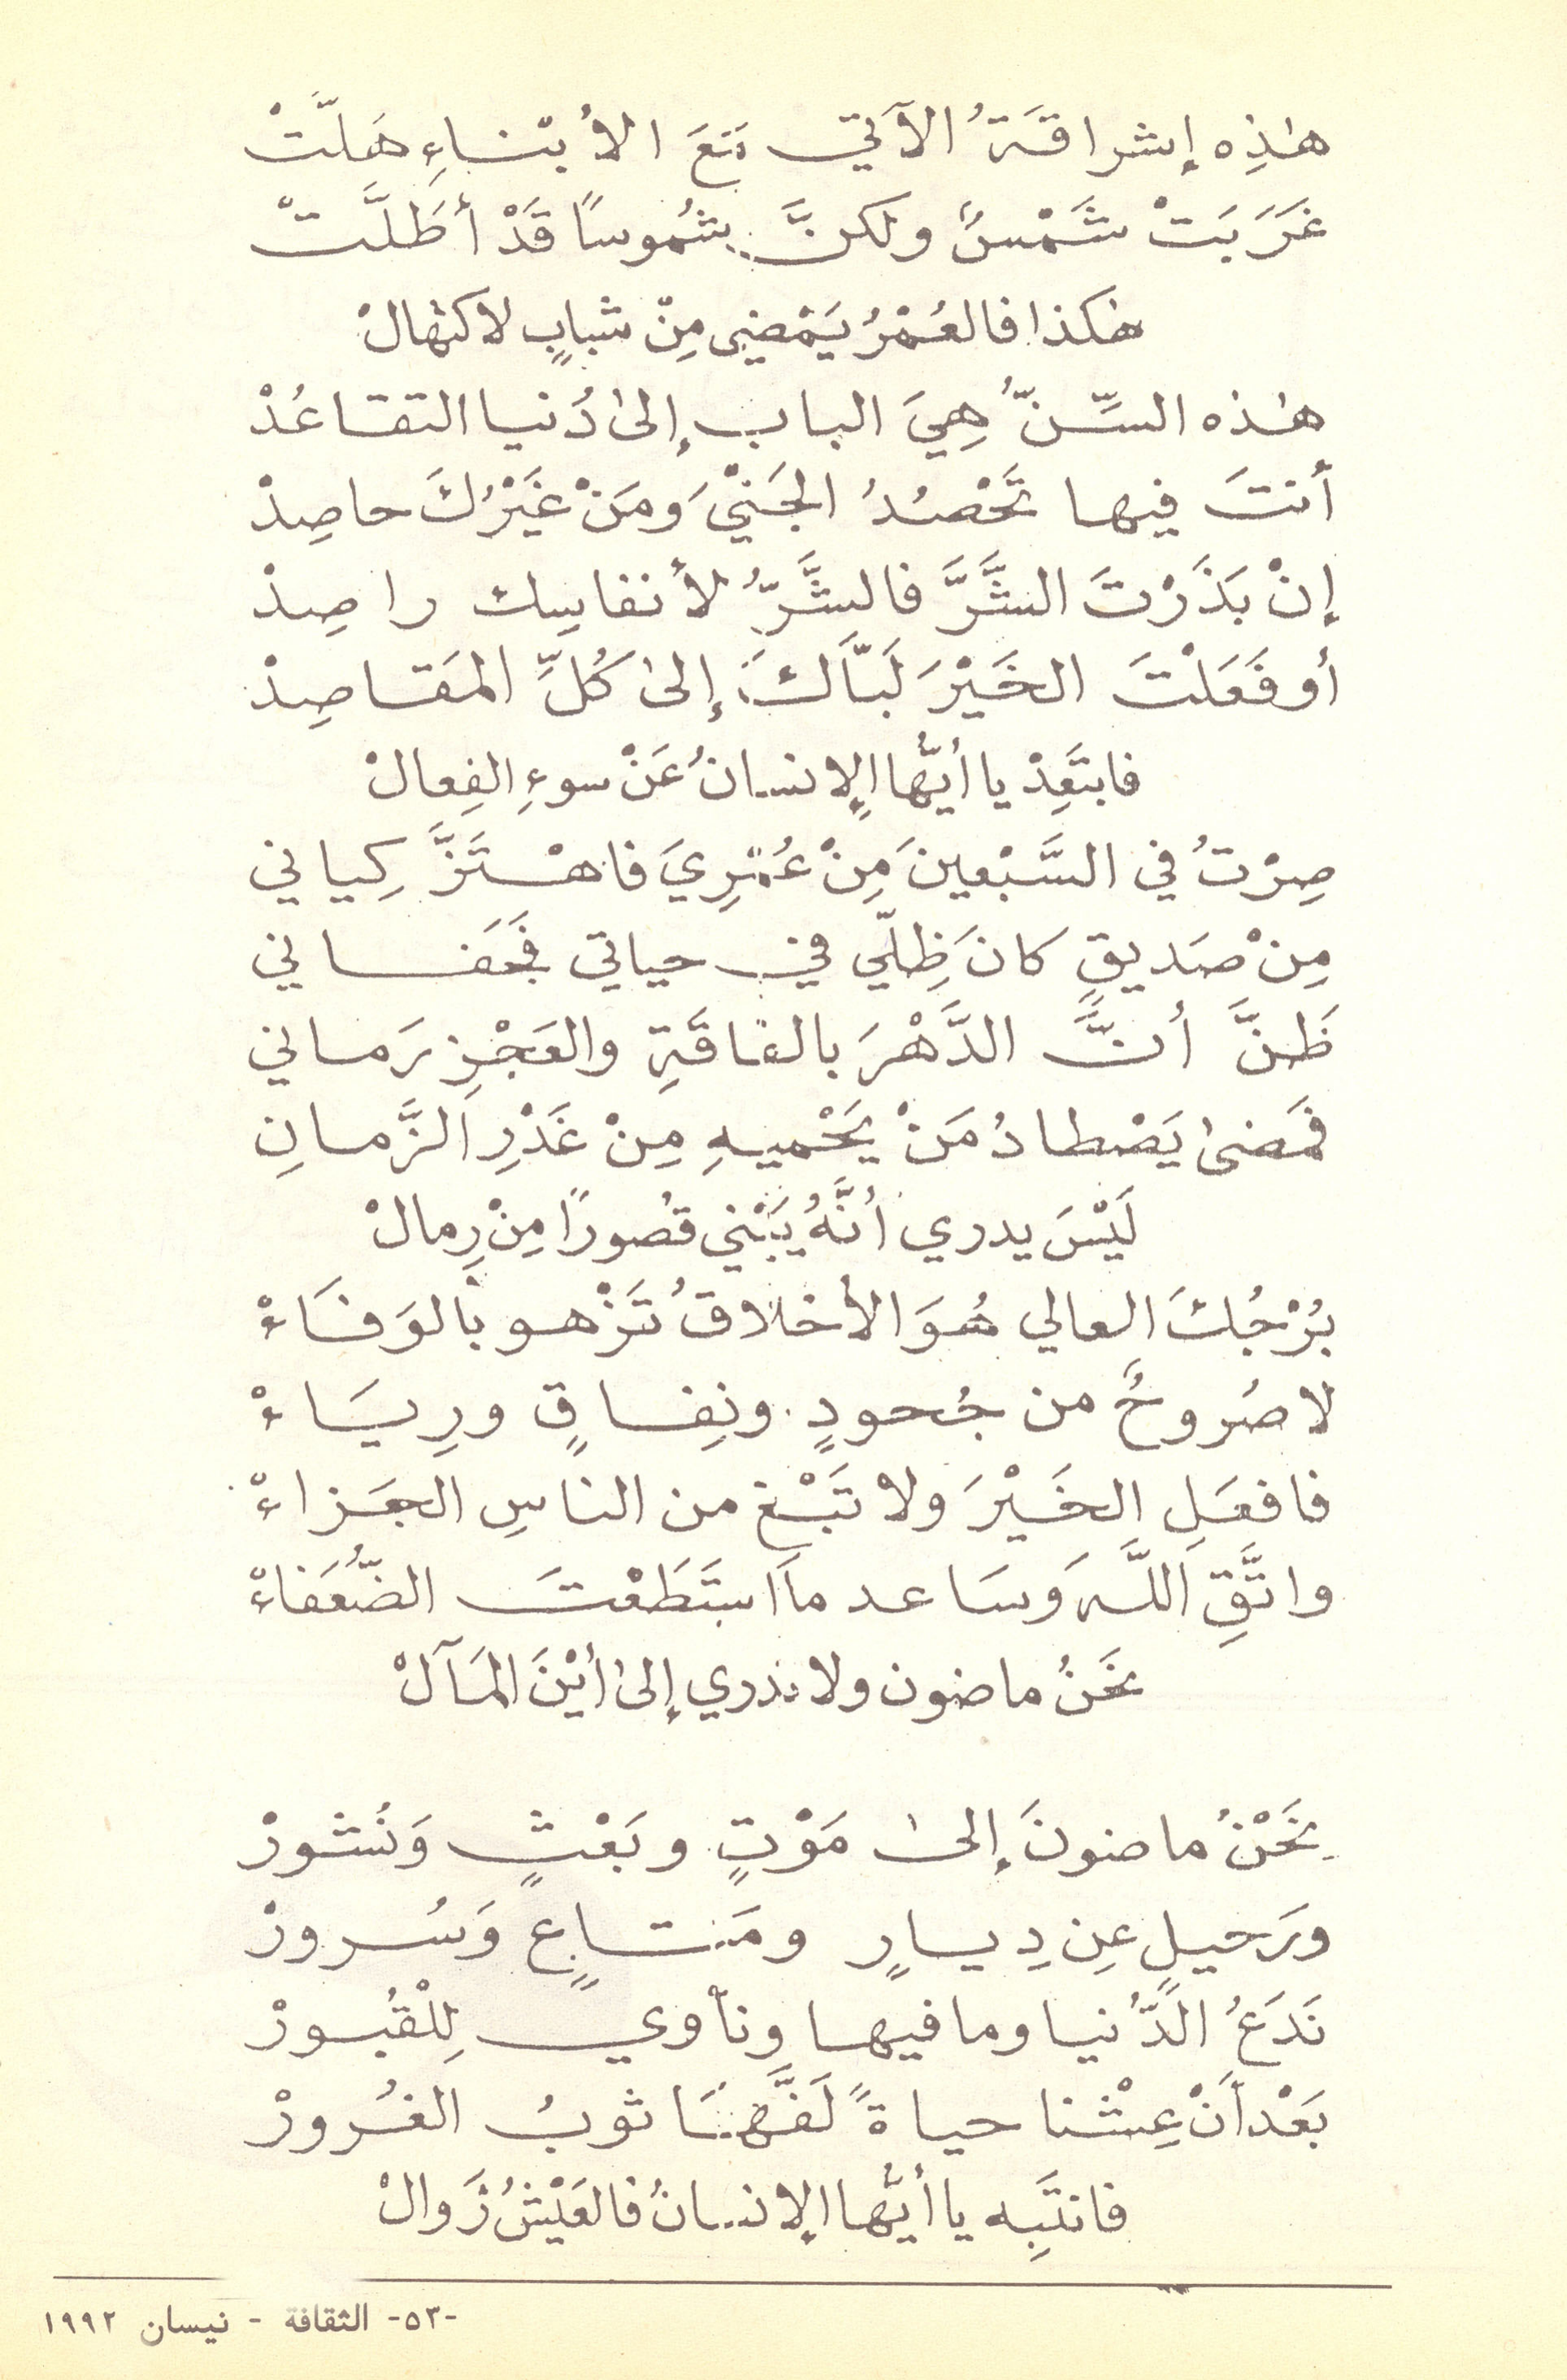 هٰذِه إشراقَةُ الآتي مَعَ الأبْناءِ هَلَّتْ
غَرَبَتْ شَمْسٌ ولكنَّ شُموسًا قَدْ أطَلَّتْ
هٰكذا فالعُمْرُ يَمْضي مِنْ شبابٍ لاكتهالْ
هٰذه السِّنُّ هِيَ الباب إلىٰ دُنيا التقاعُدْ
أنتَ فيها تَحْصُدُ الجَنْيَ ومَنْ غَيْرُكَ حاصِدْ
إنْ بَذَرْتَ الشَّرَّ فالشَّرُّ لأنفاسِك راصِدْ
أو فَعَلْتَ الخَيْرَ لَبَّاكَ إلىٰ كُلِّ المَقاصِدْ
فابتَعِدْ يا أيُّها الإنسانُ عَنْ سوءِ الفِعالْ
صِرْتُ في السَّبْعينَ مِنْ عُمْرِيَ فاهْتَزَّ كِياني
مِنْ صَديقٍ كانَ ظِلّي في حياتي فجَفاني
ظَنَّ أنَّ الدَّهْرَ بالفاقَةِ والعَجْزِ رَماني
فمَضىٰ يَصْطادُ مَنْ يَحْميهِ مِنْ غَدْرِ الزَّمانِ
لَيْسَ يدري أنَّهُ يَبْني قُصورًا مِنْ رِمالْ
بُرْجُكَ العالي هُوَ الأخلاقُ تَزْهو بالوَفَاءْ
لا صُروحٌ من جُحودٍ ونِفاقٍ ورِيَاءْ
فافعَلِ الخَيْرَ ولا تَبْغِ من الناسِ الجَزاءْ
واتَّقِ اللَّهَ وسَاعد ما اسْتَطَعْتَ الضُّعَفاءْ
نَحْنُ ماضون ولا ندري إلىٰ أيْنَ المَآلْ
نَحْنُ ماضونَ إلىٰ مَوْتٍ وبَعْثٍ وَنُشورْ
ورَحيلٍ عِن دِيارٍ ومَتاعٍ وَسُرورْ
نَدَعُ الدُّنيا وما فيها ونأوي لِلْقُبورْ
بَعْدأنْ عِشْنا حياةً لَفَّهَا ثوبُ الغُرورْ
فانتَبِه يا أيُّها الإنسانُ فالعَيْشُ زَوالْ
-٥٣- الثقافة - نيسان ١٩٩٢